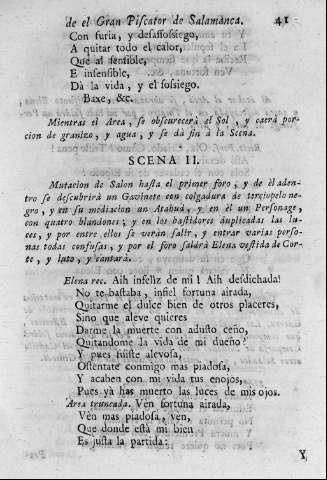 de el Gran Piscator de Salamanca. 41
Con furia, y desassossiego,
A quitar todo el calor,
Que al sensible,
E insensible,
Dà la vida, y el sossiego.
Baxe, &c.
Mientras el Area, se obscurecerà el Sol, y caerà por-
cion de granizo, y agua, y se dà fin à la Scena.
SCENA II.
Mutacion de Salon hasta el primer foro, y de èl aden-
tro se descubrirà un Gavinete con colgadura de terciopelo ne-
gro, y en su mediacion un Atahud, y en èl un Personage,
con quatro blandones; y en los bastidores duplicadas las lu-
ces, y por entre ellos se veràn salir, y entrar varias perso-
nas todas confusas, y por el foro saldrà Elena vestida de Cor-
te, y luto, y cantarà.
Elena rec. Aih infeliz de mi! Aih desdichada!
No te bastaba, infiel fortuna airada,
Quitarme el dulce bien de otros placeres,
Sino que aleve quieres
Darme la muerte con adusto ceño,
Quitandome la vida de mi dueño?
Y pues fuiste alevosa,
Ostentate conmigo mas piadosa,
Y acaben con mi vida tus enojos,
Pues yà has muerto las luces de mis ojos.
Area truncada. Vèn fortuna airada,
Vèn mas piadosa, vèn,
Que donde està mi bien
Es justa la partida:
Y